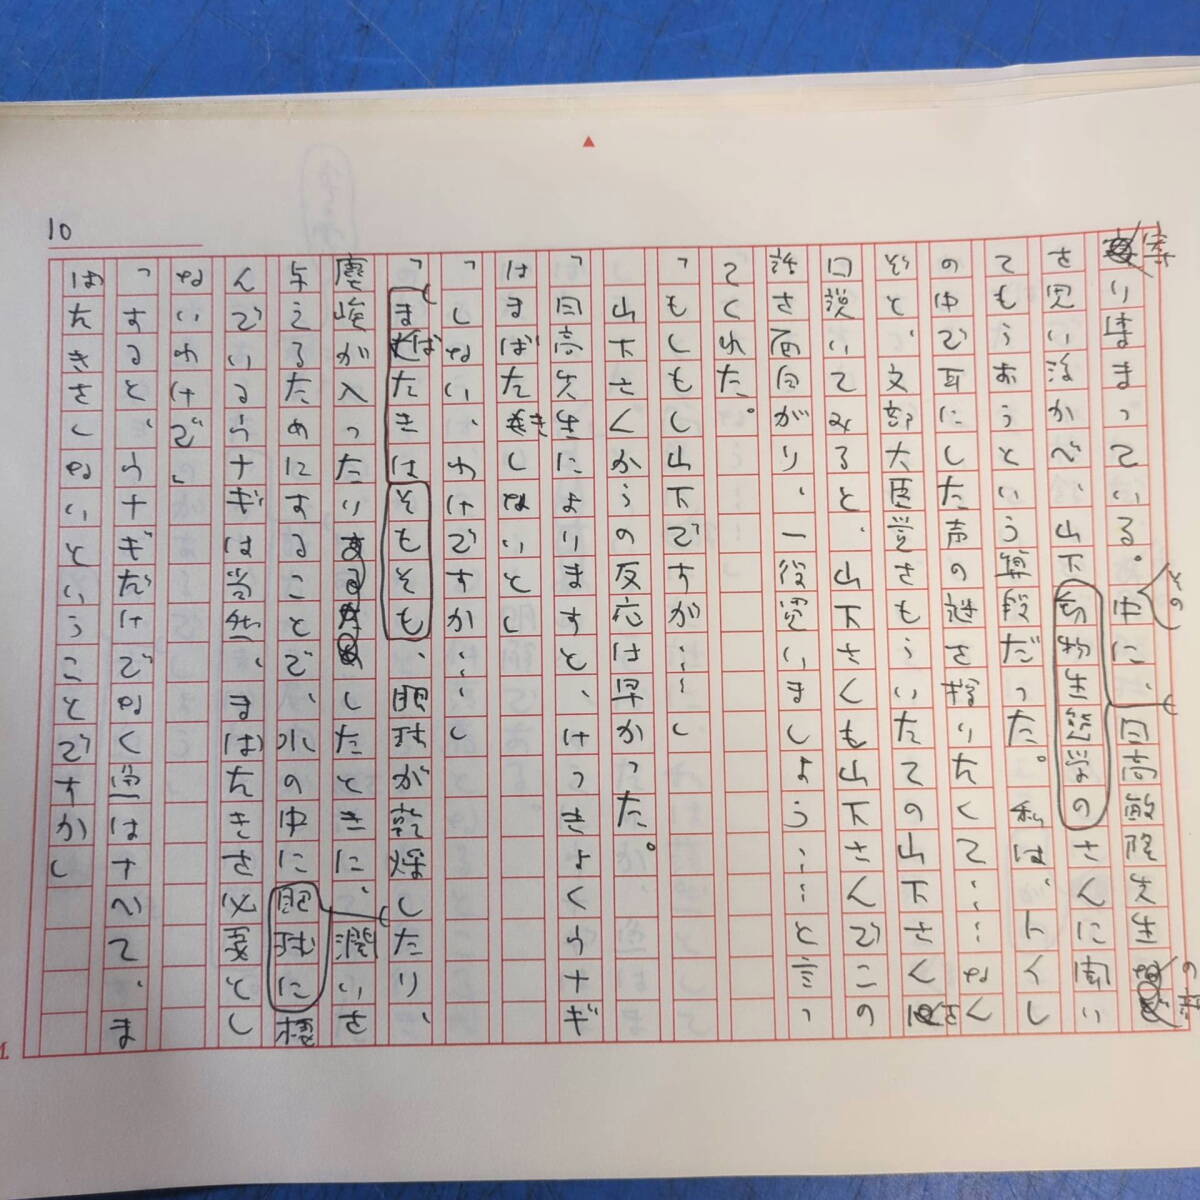 10
寄り集まっている。その中に、日高敏隆先生の顔
を思い浮かべ、山下動物生態学のさんに聞い
てもらおうという算段だった。私は、トイレ
の中で耳にした声の謎を探りたくて……なん
ぞと、文部大臣賞をもらいたての山下さんを
口説いてみると、山下さんも山下さんでこの
話を面白がり、一役買いましょう……と言っ
てくれた。
「もしもし山下ですが……」
山下さんからの反応は早かった。
「日高先生によりますと、けっきょくウナギ
はまばたきしないと」
「しない、わけですか……」
「まばたきはそもそも、眼球が乾燥したり、
塵埃が入ったりしたときに、潤いを
与えるためにすることで、水の中に眼球に棲
んでいるウナギは当然、まばたきを必要とし
ないわけで」
「すると、ウナギだけでなく魚はすべて、ま
ばたきをしないということですか」